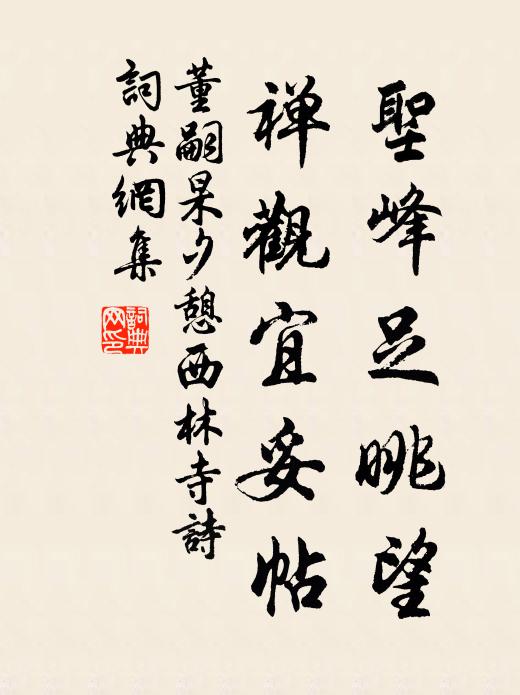 聖峰足眺望
禅觀宜妥帖
董嗣杲夕憩西林寺詩
詞典網集
詞典网印